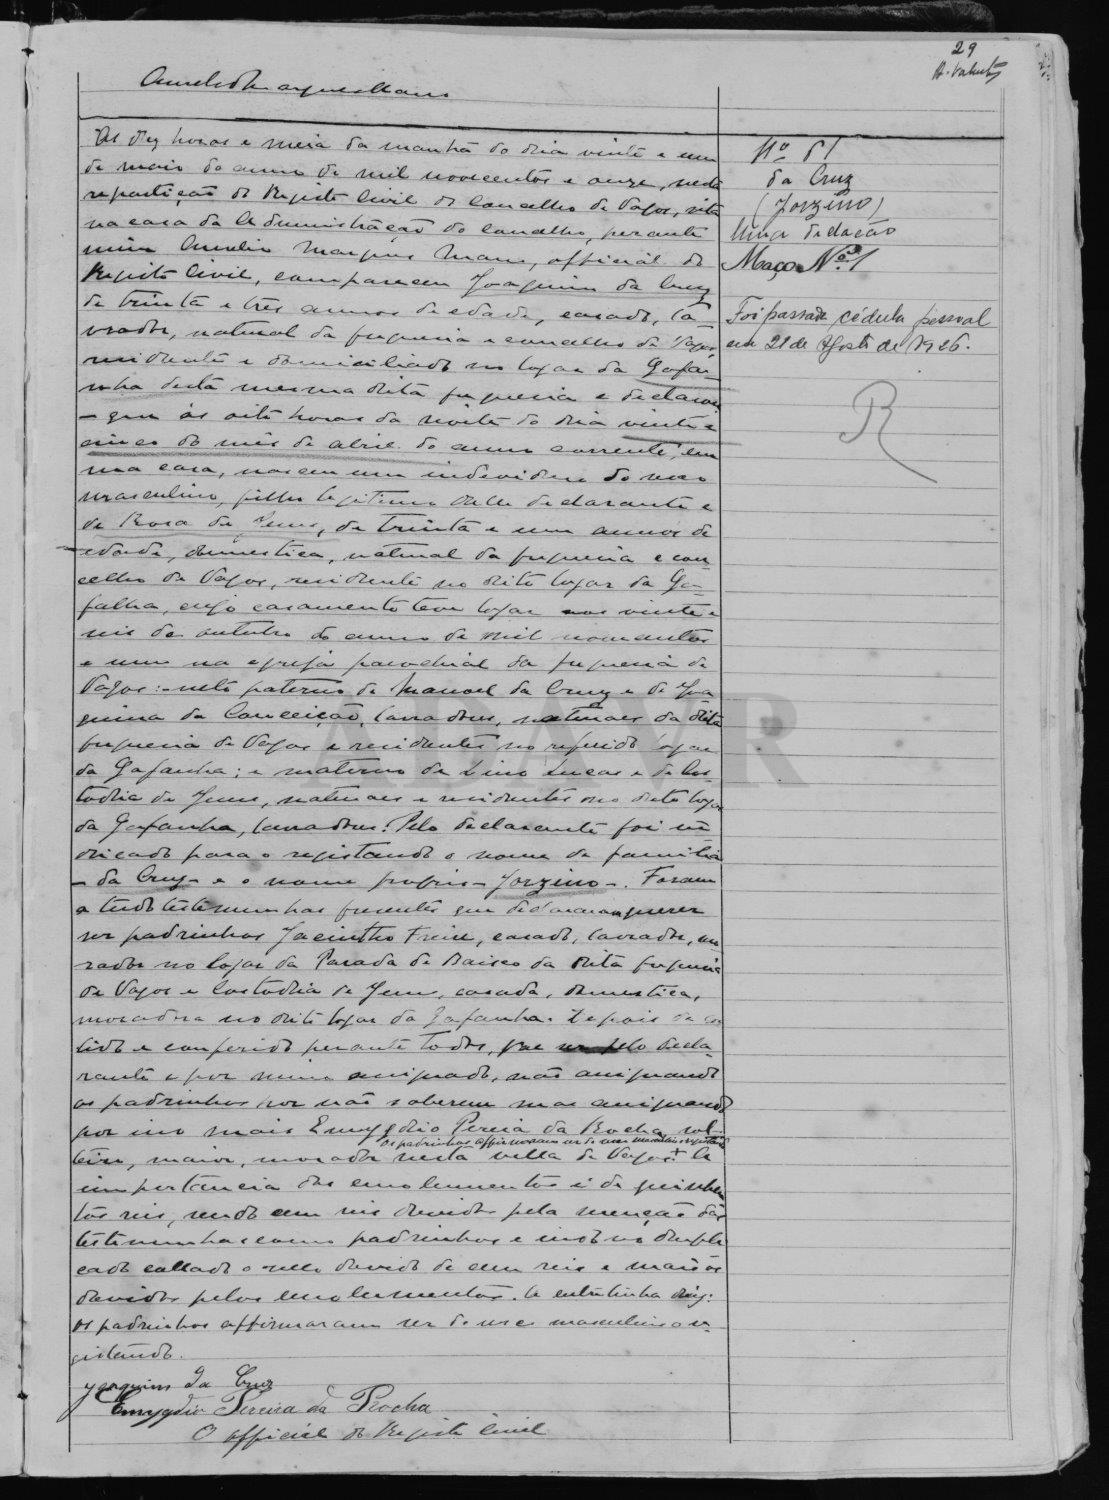 29
Aurelio Marques Mano
As dez horas e meia da manhã do dia vinte e um
de maio do anno de mil novecentos e onze, nesta
repartição do Registo Civil do Concelho de Vagos, sita
na casa da Administração do Concelho, perante
mim Aurelio Marques Mano, official do
Registo Civil, compareceu Joaquim da Cruz
de trinta e três annos de edade, casado, la-
vrador, natural da freguesia e concelho de Vagos,
residente e domiciliado no logar da Gafa-
nha desta mesma dita freguesia e declarou
- que ás oito horas da noite do dia vinte e
cinco do mês de abril do anno corrente, em
sua casa, nasceu um individuo do sexo
masculino, filho legitimo delle declarante e
de Rosa de Jesus, de trinta e um annos de
edade, domestica, natural da freguesia e con-
celho de Vagos, residente no dito logar da Ga-
fanha, cujo casamento teve logar aos vinte e
seis de outubro do anno de mil novecentos
e um na egreja parochial da freguesia de
Vagos: neto paterno de Manoel da Cruz e de Joa
quina da Conceição, lavradores, naturaes da dita
freguesia de Vagos e residentes no referido logar
da Gafanha; e materno de Lino Lucas e de Cus-
todia de Jesus, naturaes e residentes no dito logar
da Gafanha, lavradores. Pelo declarante foi in
dicado para o registando o nome de familia
- da Cruz - e o nome proprio - Jorzino -. Foram
a tudo testemunhas presentes que declararam querer
ser padrinhos Jacintho Freire, casado, lavrador, mo
rador no logar da Parada de Baixo da dita freguesia
de Vagos e Custodia de Jesus, casada, domestica,
moradora no dito logar da Gafanha. Depois de
lido e conferido perante todos, vae pelo decla-
rante e por mim assignado, não assignando
os padrinhos por não saberem mas assignando
por isso mais Emygdio Pereira da Rocha, sol-
os padrinhos affirmaram ser do sexo masculino o registando
teiro, maior, morador nesta villa de Vagos. + A
importancia dos emolumentos é de quinhen
tos reis, sendo cem reis devidos pela menção das
testemunhas como padrinhos e indo no dupli
cado collado o sello devido de cem reis e mais os
devidos pelos emolumentos. A entrelinha diz:
os padrinhos affirmaram ser do sexo masculino o re-
gistando.
Joaquim da Cruz
Emygdio Pereira da Rocha
O official do Registo Civil
Nº 61
da Cruz
(Jorzino)
Maço Nº 1
Foi passada cédula pessoal
em 21 de Agosto de 1926.
R
ADAVR